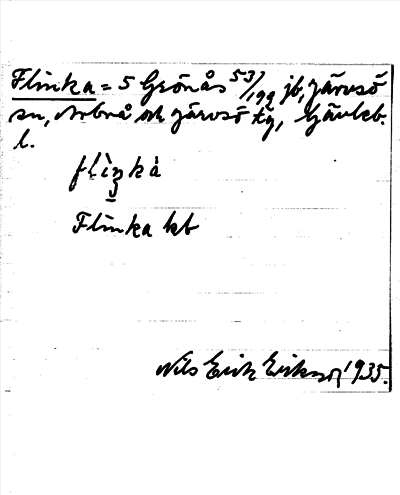 Flinka = 5 Grönås 53/192 jb, Järvsö
sn, Arbrå och Järvsö tg, Gävleb.
l.
flìŋkà
Flinka kb
Nils Erik Eriksson 1935.